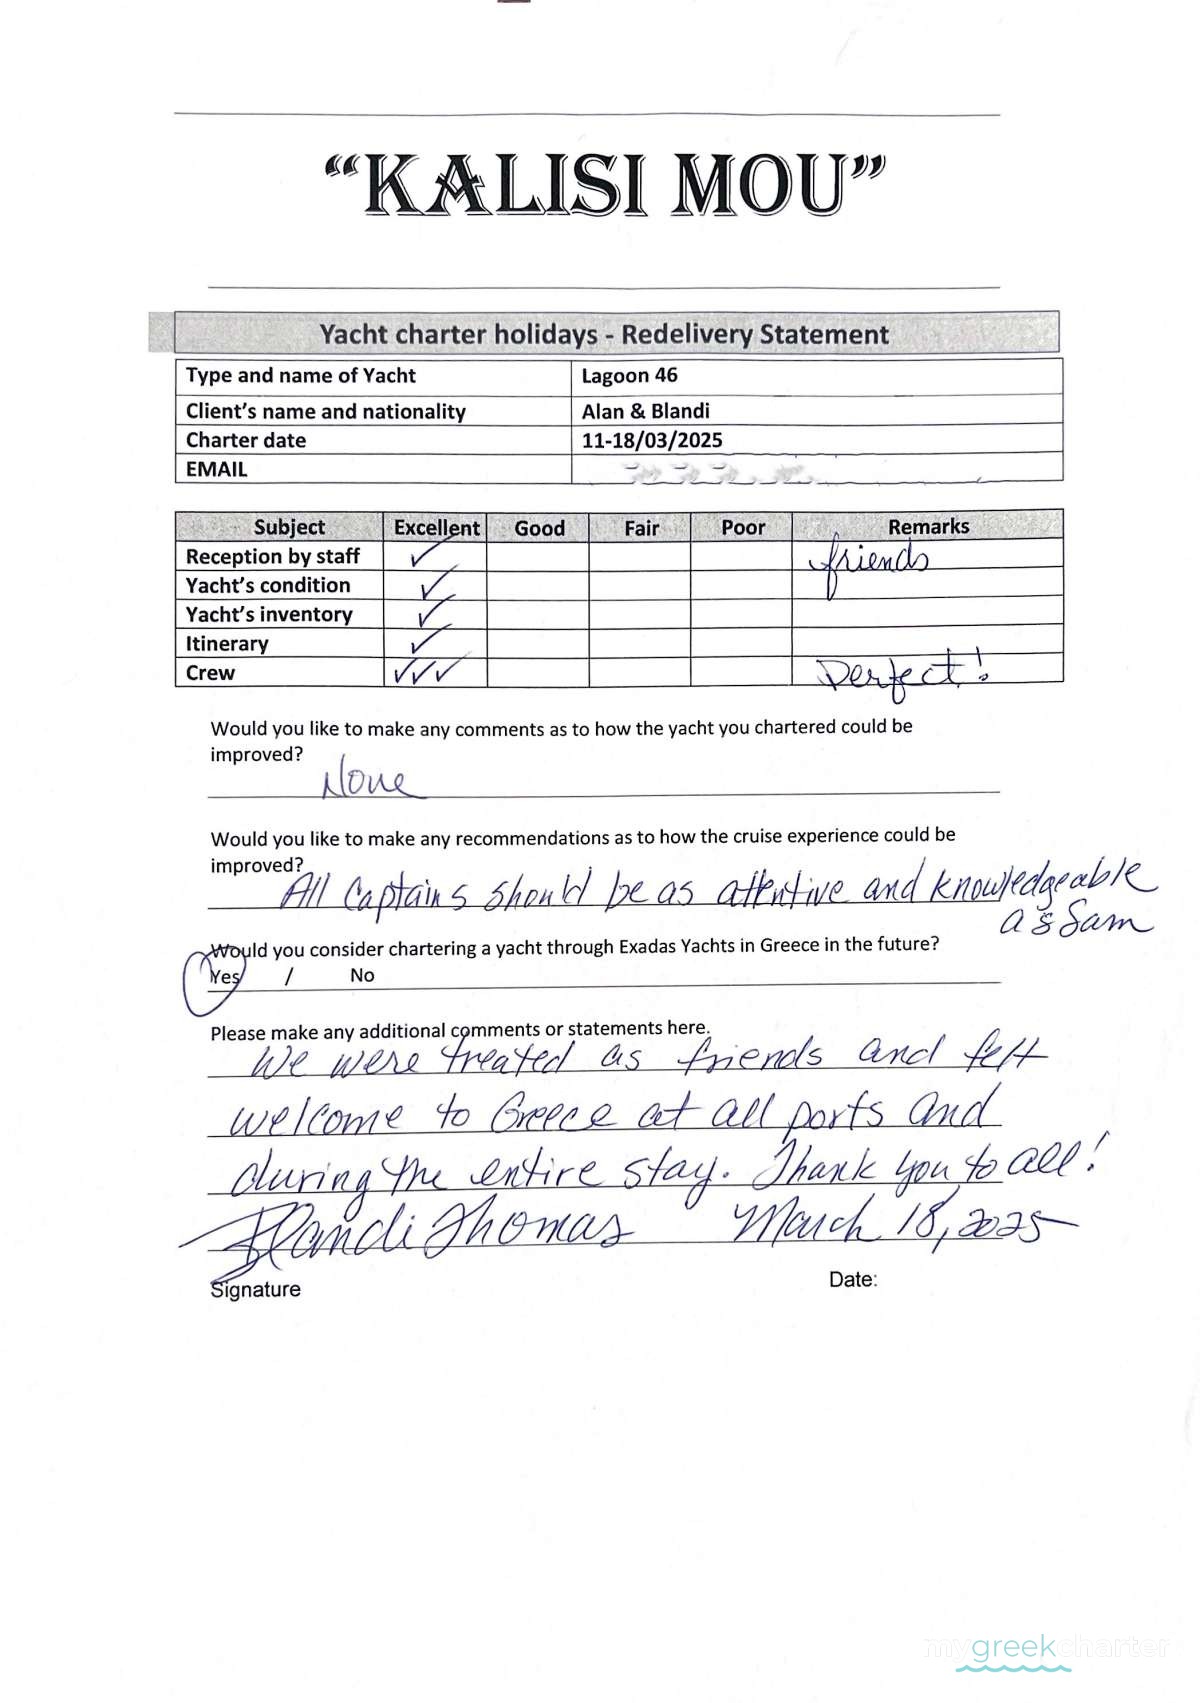 “KALISI MOU”
Yacht charter holidays - Redelivery Statement
Type and name of Yacht Lagoon 46
Client’s name and nationality Alan & Blandi
Charter date 11-18/03/2025
EMAIL
Subject Excellent Good Fair Poor Remarks
Reception by staff ✓ friends
Yacht’s condition ✓
Yacht’s inventory ✓
Itinerary ✓
Crew ✓✓✓ Perfect!
Would you like to make any comments as to how the yacht you chartered could be
improved?
None
Would you like to make any recommendations as to how the cruise experience could be
improved?
All Captains should be as attentive and knowledgeable
as Sam
Would you consider chartering a yacht through Exadas Yachts in Greece in the future?
Yes / No
Please make any additional comments or statements here.
We were treated as friends and felt
welcome to Greece at all ports and
during the entire stay. Thank you to all!
Blandi Thomas March 18, 2025
Signature Date:
mygreekcharter